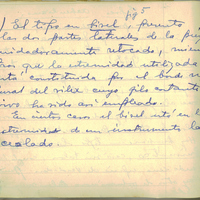 fig 5
) El tipo en bisel, presenta
las dos partes laterales de la pie
cuidadosamente retocado, mien
que la extremidad utilizada
constituida por el borde na
del silex cuyo filo cortante
vivo ha sido así empleado.
En ciertos casos el bisel está en l
extremidad de un instrumento la